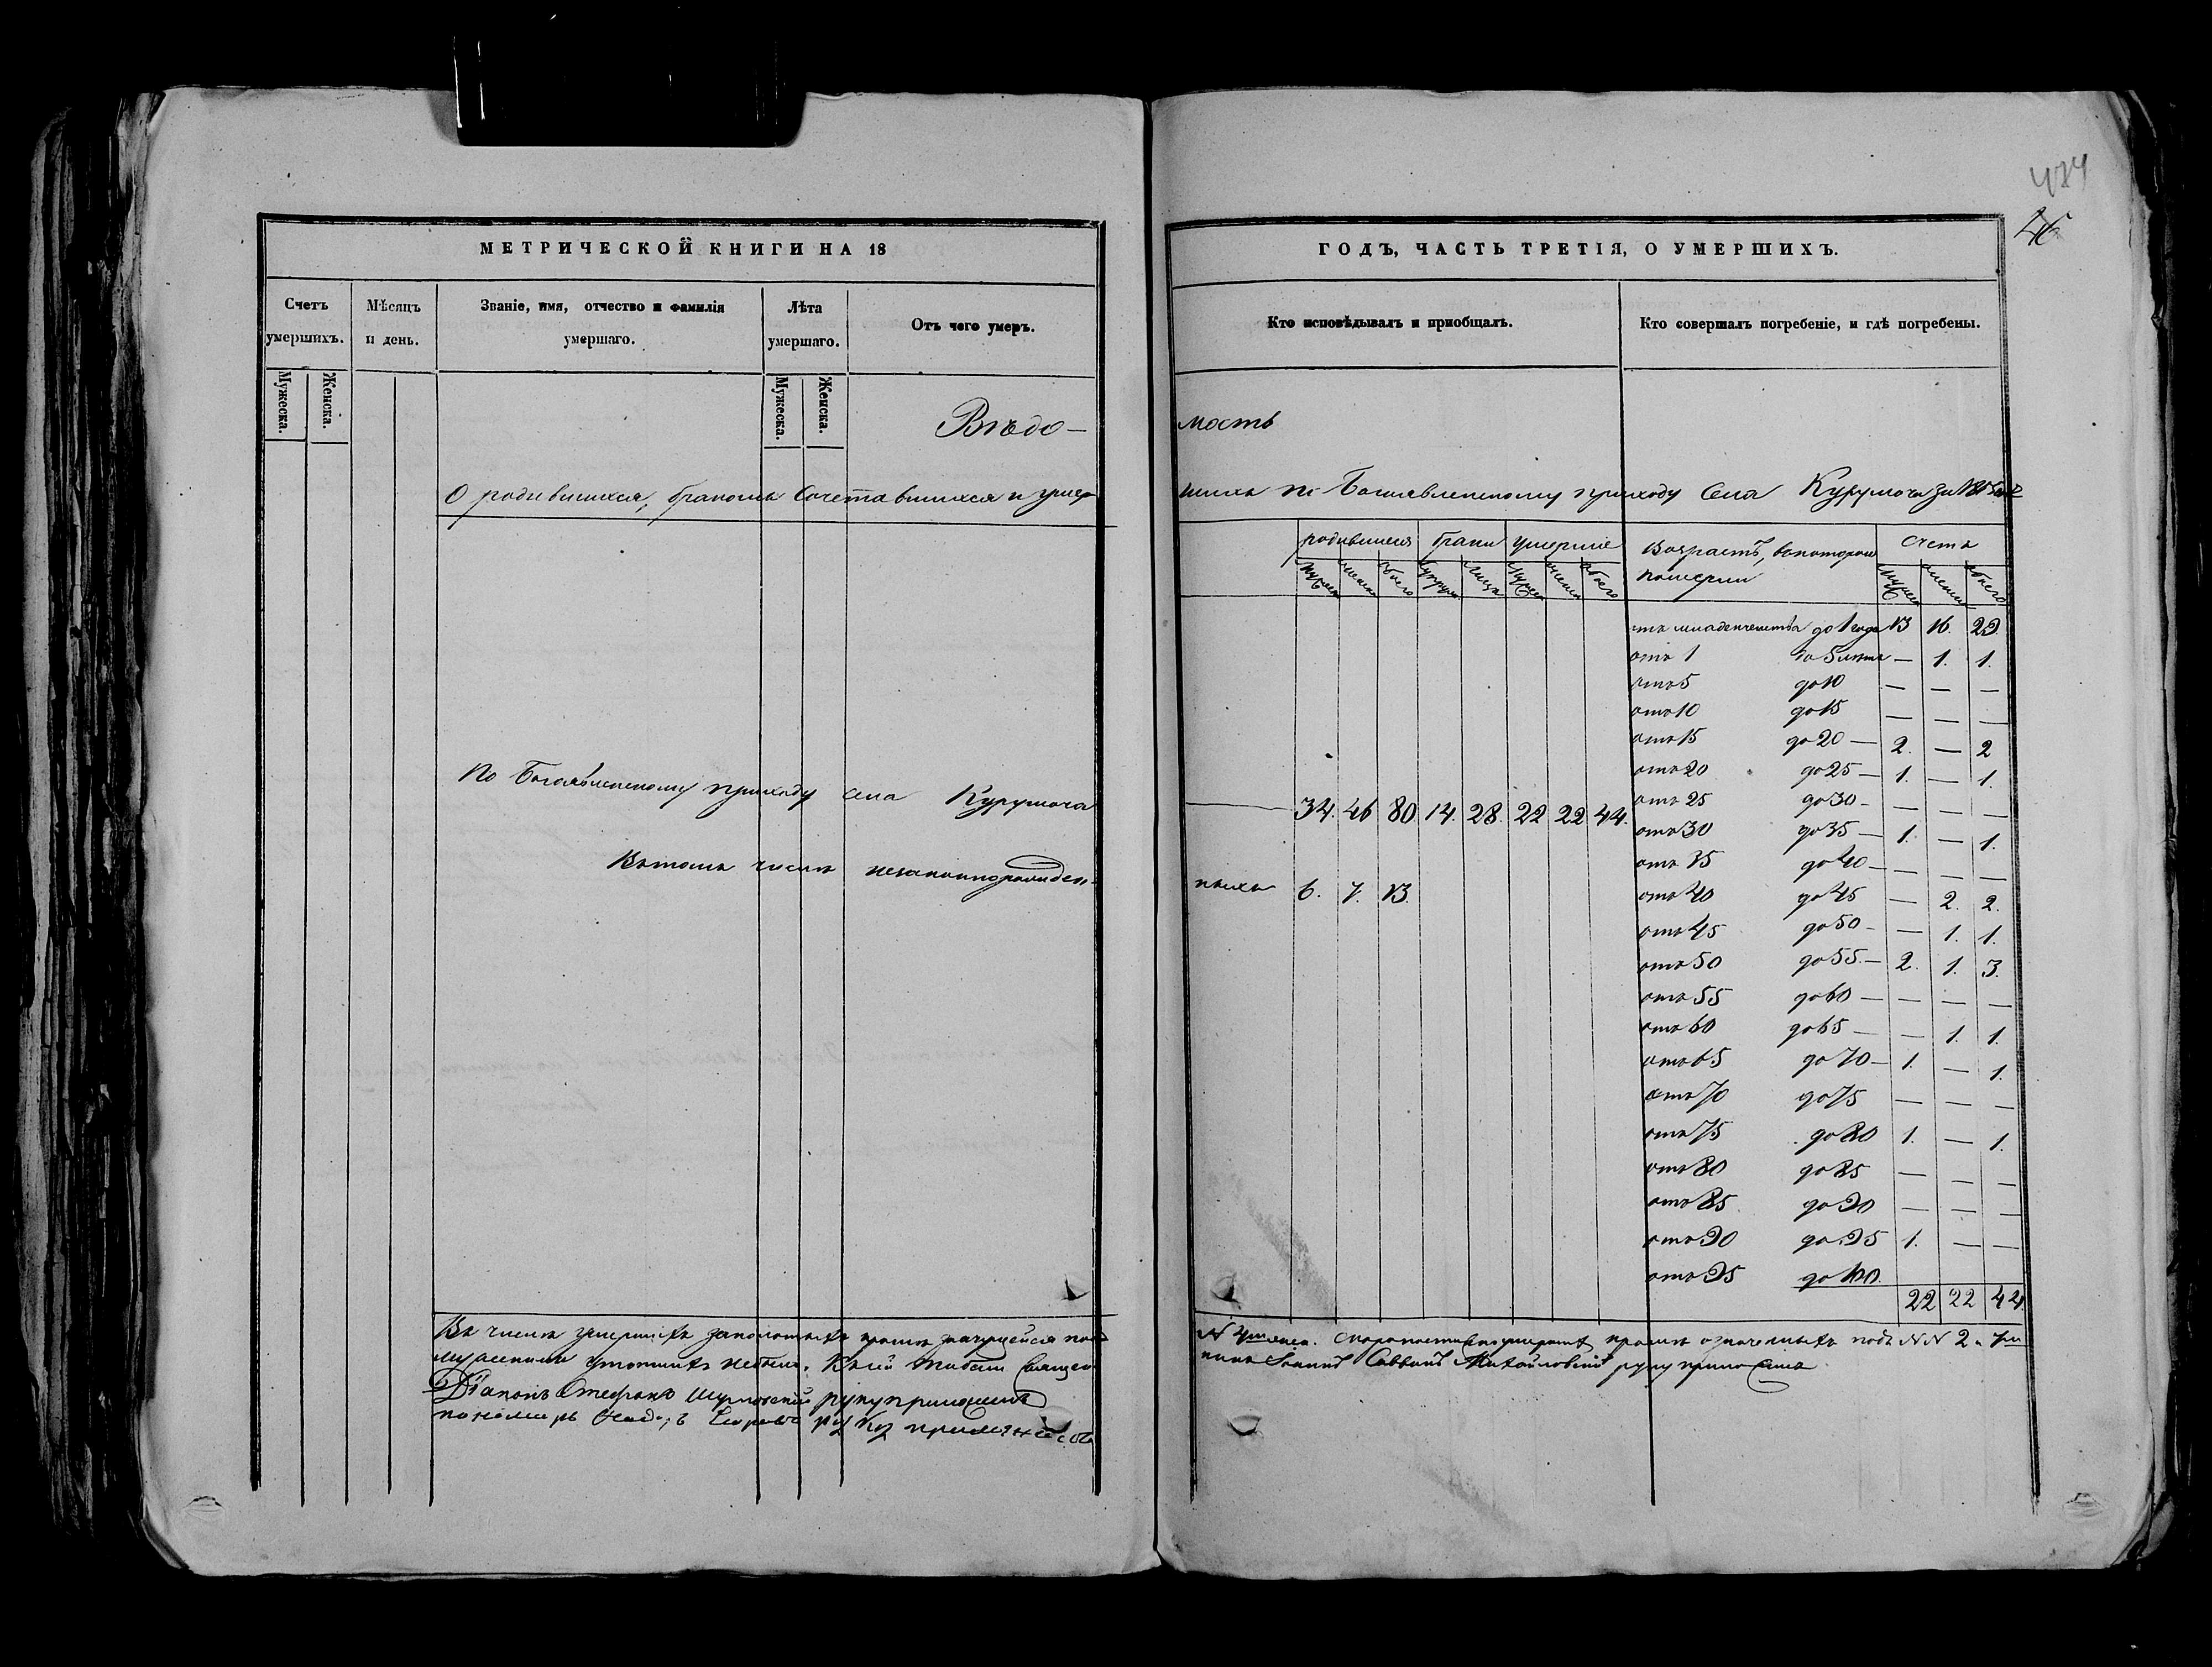 474
26
МЕТРИЧЕСКОЙ КНИГИ НА 18
ГОДЪ, ЧАСТЬ ТРЕТІЯ, О УМЕРШИХЪ.
Счетъ умершихъ.
Мѣсяцъ и день.
Званіе, имя, отчество и фамилія умершаго.
Лѣта умершаго.
Отъ чего умеръ.
Кто исповѣдывалъ и пріобщалъ.
Кто совершалъ погребеніе, и гдѣ погребены.
Мужеска. Женска. Мужеска. Женска.
Вѣдо-
мость
О родившихся, бракомъ сочетавшихся и умер-
шихъ по Богоявленскому приходу села Курумоча за
родившіеся браки умершіе
Возрастъ, въ которомъ померли
счетъ
мужеск женск обоего супруж лица мужеск женск обоего
мужеск женск обоего
отъ младенчества до 1 года 13 16. 29.
отъ 1 до 5 лѣтъ — 1. 1.
отъ 5 до 10 — — —
отъ 10 до 15 — — —
отъ 15 до 20 — 2. — 2
отъ 20 до 25 — 1. — 1.
отъ 25 до 30 - — — —
отъ 30 до 35 — 1. — 1.
отъ 35 до 40 — — — —
отъ 40 до 45 — 2. 2.
отъ 45 до 50 - — 1. 1.
отъ 50 до 55. — 2. 1. 3.
отъ 55 до 60 — — — —
отъ 60 до 65 — — 1. 1.
отъ 65 до 70 — 1. — 1.
отъ 70 до 75 — — —
отъ 75 до 80 1. — 1.
отъ 80 до 85 — — —
отъ 85 до 90 — — —
отъ 90 до 95 1. — —
отъ 95 до 100.
22 22 44
По Богоявленскому приходу села Курумоча
34. 46 80 14. 28. 22 22 44.
Въ томъ числѣ незаконнорожден-
ныхъ 6. 7. 13.
Въ числѣ умершихъ кромѣ значущейся под
N скоропостижно умершихъ кромѣ означенныхъ подъ NN 2 и 7
утопшихъ небыло. Священ
никъ Іоаннъ Саввинъ Михайловскій руку приложилъ
Діаконъ Стефанъ руку приложилъ
пономарь руку приложилъ